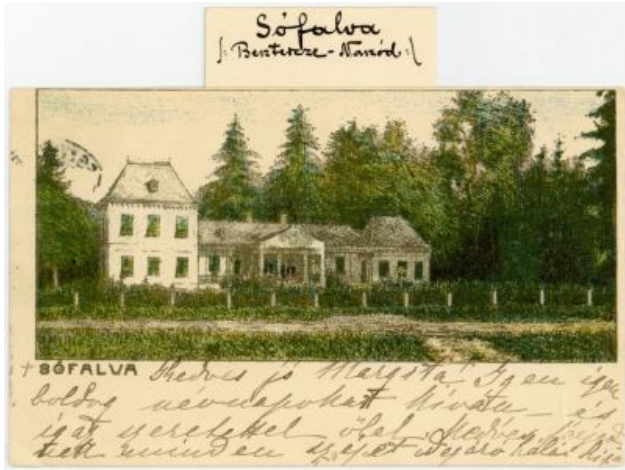 Sófalva
/: Besztercze-Naszód :/
SÓFALVA Kedves jó Margita! Igen igen
boldog nevnapokat kiván – és
igaz szeretettel ölel Kedves
nek minden szépet